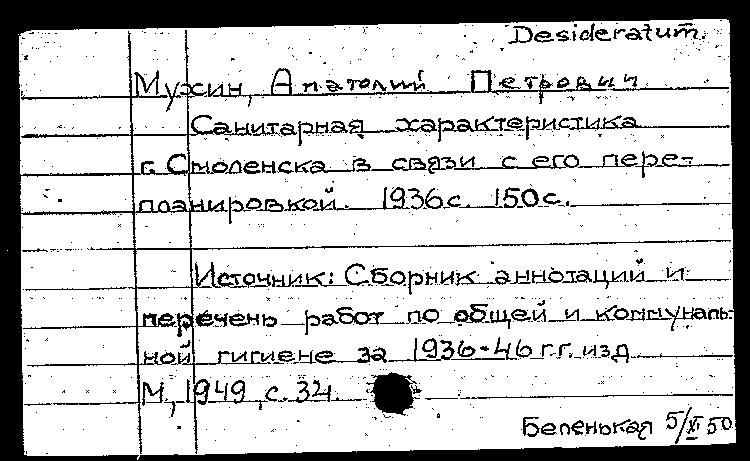 Desideratum.
Мухин, Анатолий Петрович
Санитарная характеристика
г. Смоленска в связи с его пере-
планировкой. 1936 с. 150 с.
Источник: Сборник аннотаций и
перечень работ по общей и коммуналь-
ной гигиене за 1936-46 г.г. изд
М, 1949, с. 34.
Беленькая 5/XI 50